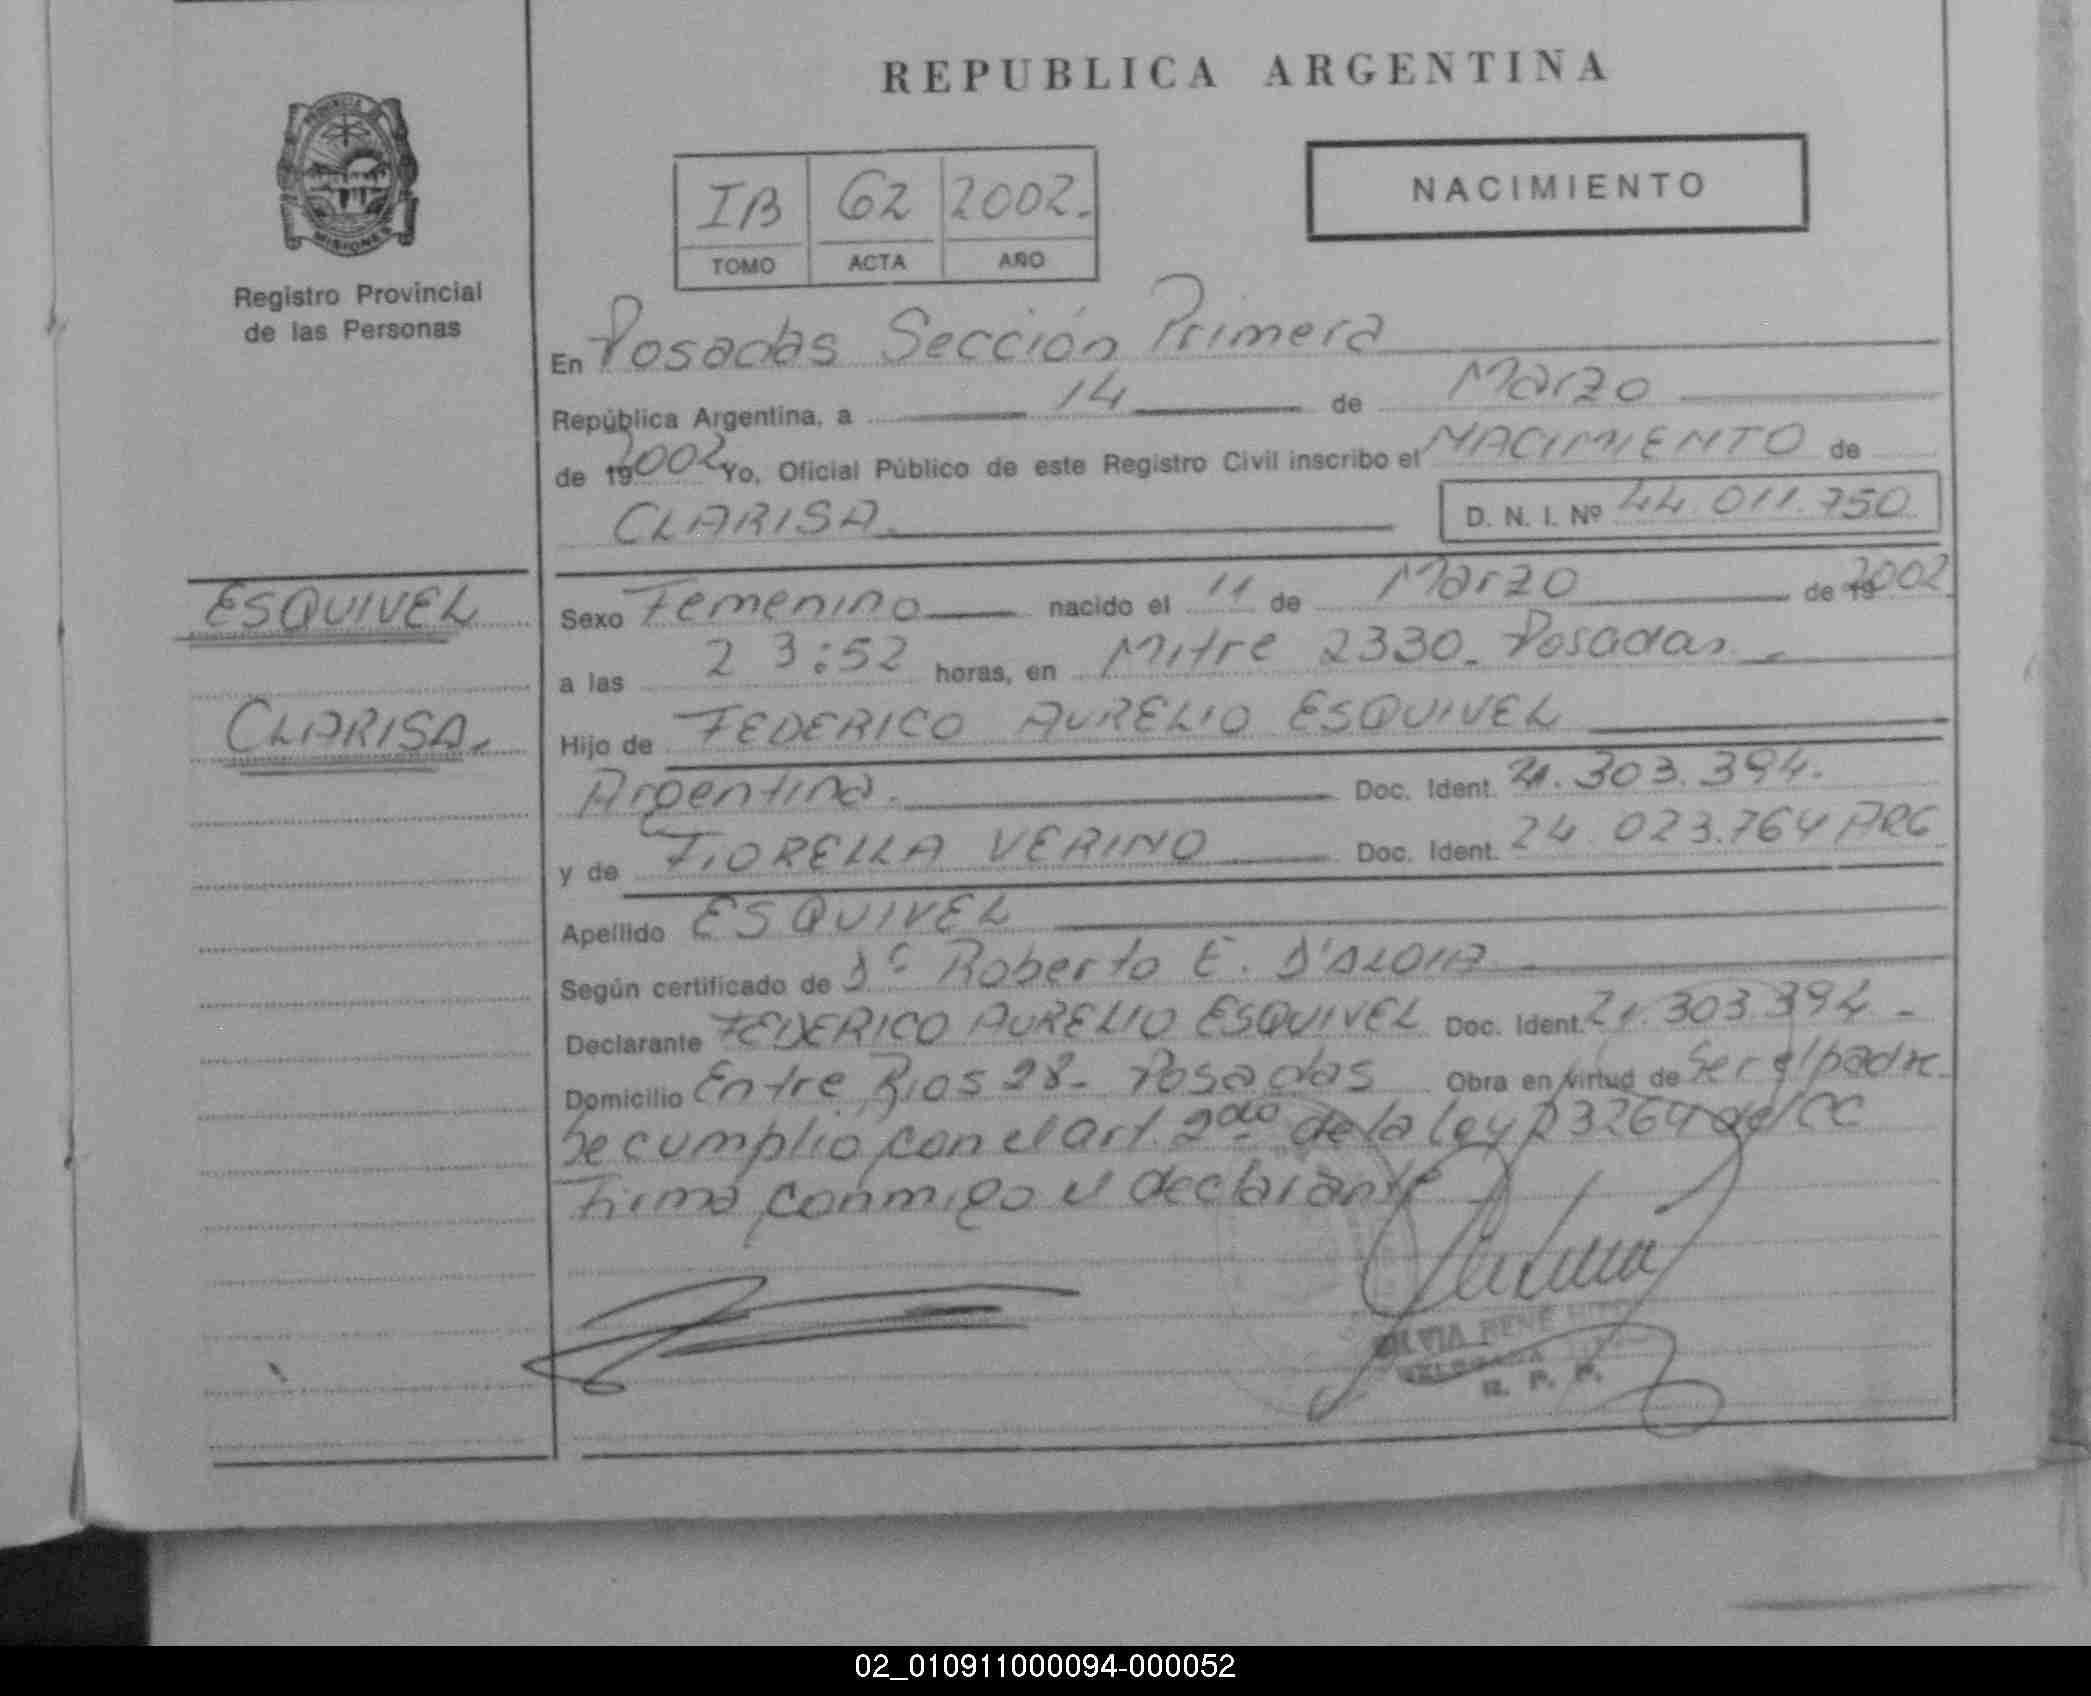 REPUBLICA ARGENTINA
PROVINCIA
MISIONES
Registro Provincial
de las Personas
IB 62 2002.
TOMO ACTA AÑO
NACIMIENTO
En Posadas Sección Primera
República Argentina, a 14 de Marzo
de 19 2002 Yo, Oficial Público de este Registro Civil inscribo el NACIMIENTO de
CLARISA. D. N. I. Nº 44.011.750
ESQUIVEL
CLARISA.
Sexo Femenino nacido el 11 de Marzo de 19 2002
a las 23:52 horas, en Mitre 2330. Posadas.
Hijo de FEDERICO AURELIO ESQUIVEL
Argentina. Doc. Ident. 21.303.394.
y de FIORELLA VERINO Doc. Ident. 24.023.764 ARG
Apellido ESQUIVEL
Según certificado de Roberto E. D'ALOIA
Declarante FEDERICO AURELIO ESQUIVEL Doc. Ident. 21.303.394.-
Domicilio Entre Rios 28- Posadas Obra en virtud de Ser el padre.
Se cumplio con el art. 2do de la ley 23264 del CC
Firma conmigo el declarante
SILVIA RENE
DELEGADA
R. P. P.
02_010911000094-000052